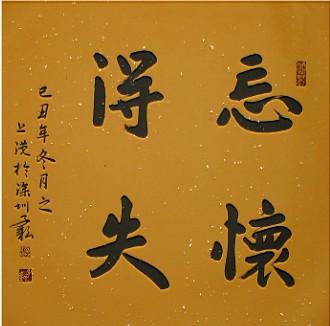 忘懷
得失
己丑年冬月之
上浣於深圳